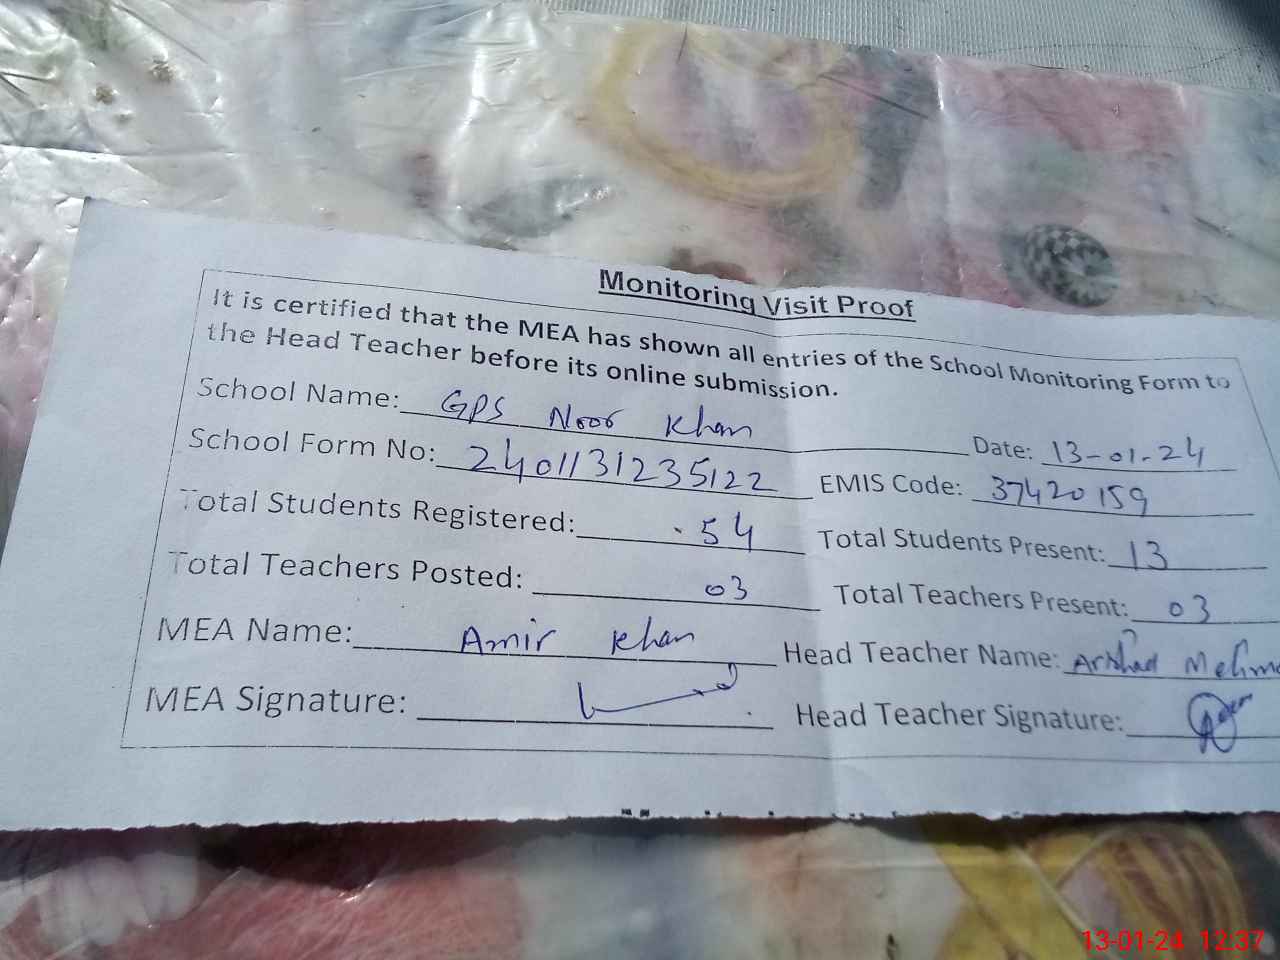 Monitoring Visit Proof
It is certified that the MEA has shown all entries of the School Monitoring Form to
the Head Teacher before its online submission.
School Name: GPS Noor Khan Date: 13-01-24
School Form No: 2401131235122 EMIS Code: 37420159
Total Students Registered: 54 Total Students Present: 13
Total Teachers Posted: 03 Total Teachers Present: 03
MEA Name: Amir Khan Head Teacher Name: Arshad
MEA Signature: Head Teacher Signature:
13-01-24 12:37